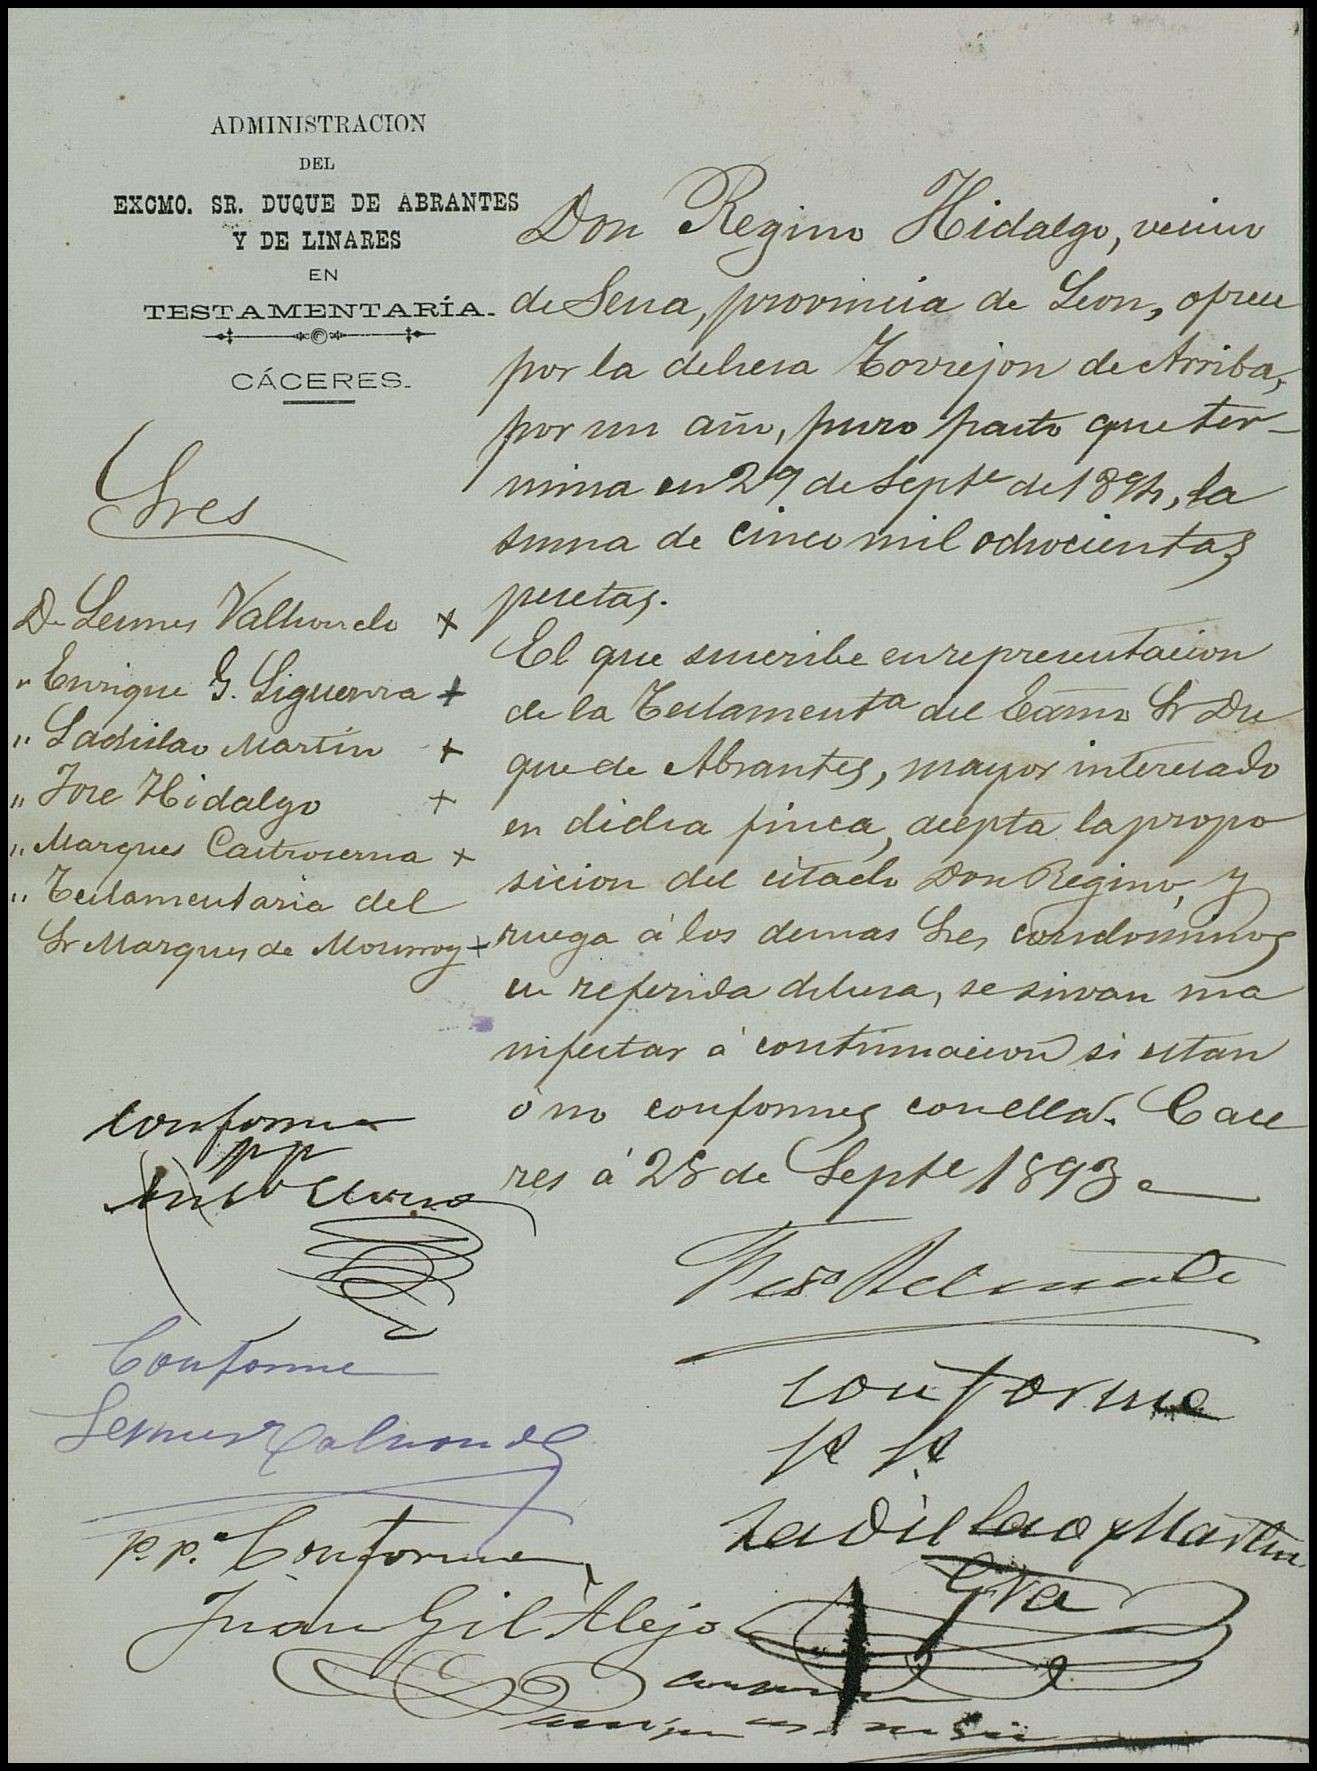 ADMINISTRACION
DEL
EXCMO. SR. DUQUE DE ABRANTES
Y DE LINARES
EN
TESTAMENTARÍA.
CÁCERES.
Sres
Dn Lesmes Valhondo +
" Enrique G. Siguenza +
" Ladislao Martin +
" Jose Hidalgo +
" Marques Castroserna +
" Testamentaria del
Sr Marques de Monroy +
Don Regino Hidalgo, vecino
de Sena, provincia de Leon, ofrece
por la dehesa Torrejon de Arriba,
por un año, puro pasto que ter-
mina en 29 de Septe de 1894, la
suma de cinco mil ochocientas
pesetas.
El que suscribe en representacion
de la Testamenta del Excmo Sr Du
que de Abrantes, mayor interesado
en dicha finca, acepta la propo
sicion del citado Don Regino, y
ruega á los demas Sres condominos
en referida dehesa, se sirvan ma
nifestar á continuacion si estan
ó no conformes con ella. Cace
res á 28 de Septe 1893
conforme
pp
Conforme
Lesmes Valhondo
p.p. Conforme
Juan Gil Alejo
conforme
p p
Ladislao Martin
Gra
conforme